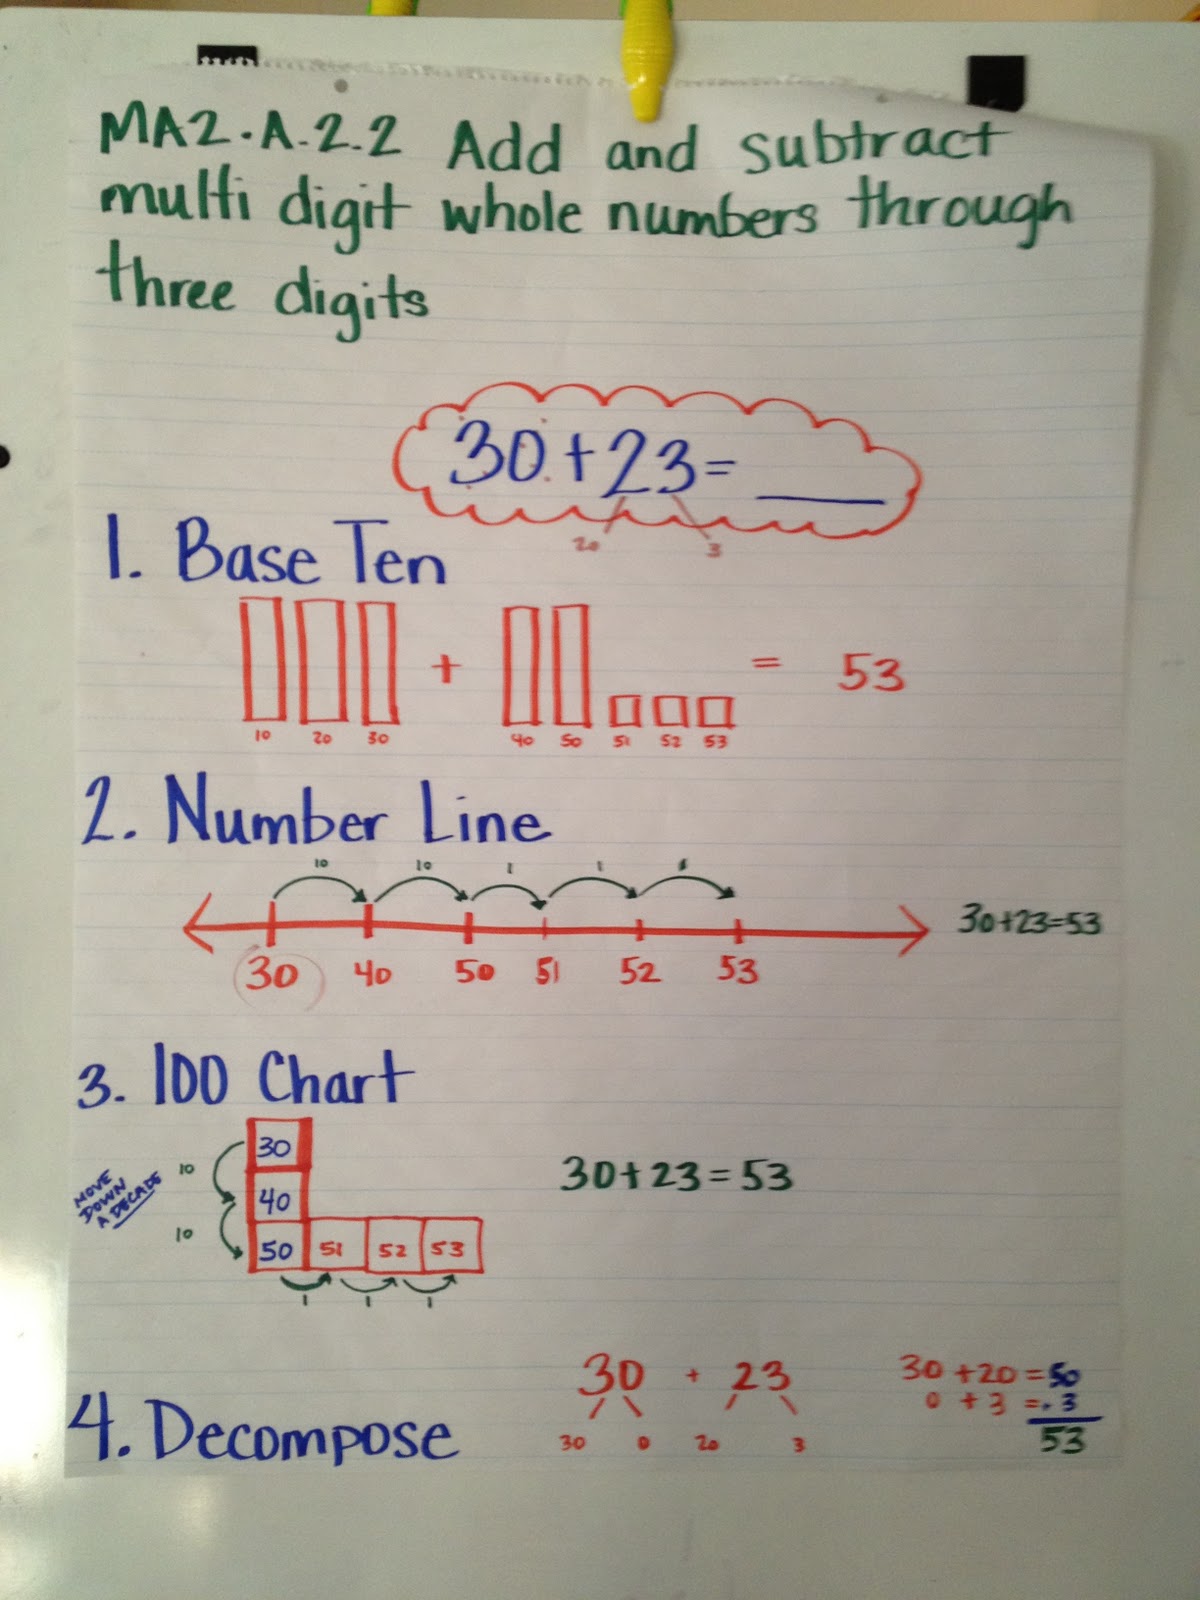 MA2.A.2.2 Add and subtract
multi digit whole numbers through
three digits
30+23=
20 3
1. Base Ten
+ = 53
10 20 30 40 50 51 52 53
2. Number Line
10 10 1 1 1
30+23=53
30 40 50 51 52 53
3. 100 Chart
30
10
MOVE
DOWN
A DECADE
40
30+23=53
10
50 51 52 53
1 1 1
30 + 23
30 +20 =50
0 + 3 =+3
4. Decompose
30 0 20 3
53